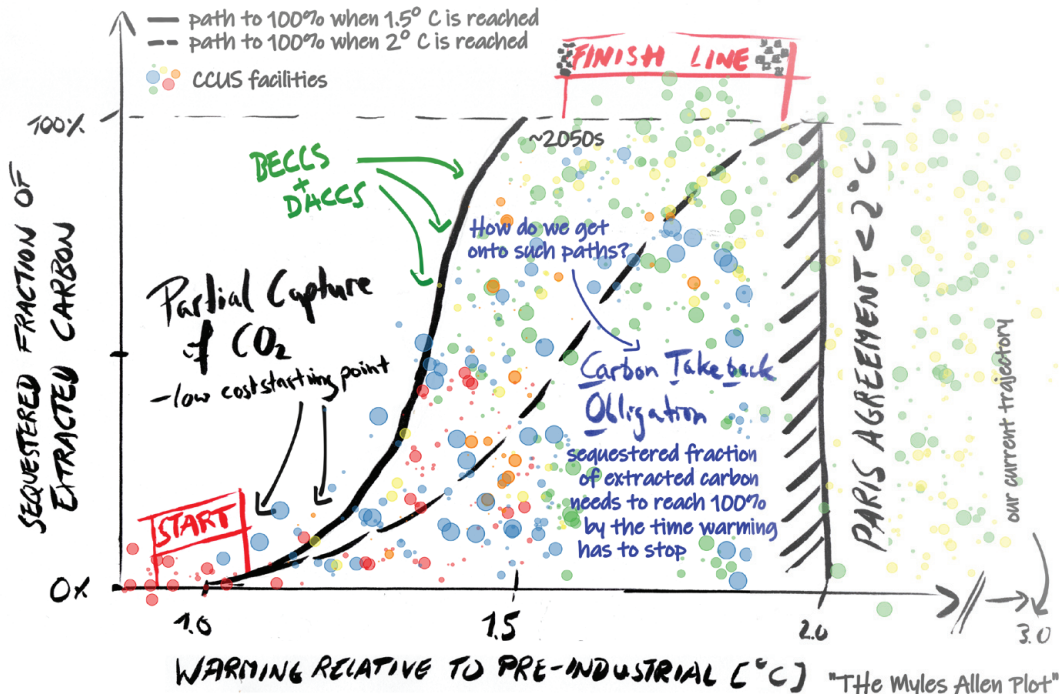 path to 100% when 1.5° C is reached
path to 100% when 2° C is reached
CCUS facilities
FINISH LINE
100%
~2050s
BECCS
+
DACCS
How do we get
onto such paths?
Partial Capture
of CO₂
- low cost starting point
Carbon Takeback
Obligation
sequestered fraction
of extracted carbon
needs to reach 100%
by the time warming
has to stop
START
0%
SEQUESTERED FRACTION OF
EXTRACTED CARBON
PARIS AGREEMENT < 2°C
our current trajectory
1.0
1.5
2.0
3.0
WARMING RELATIVE TO PRE-INDUSTRIAL [°C]
"THe Myles Allen Plot"